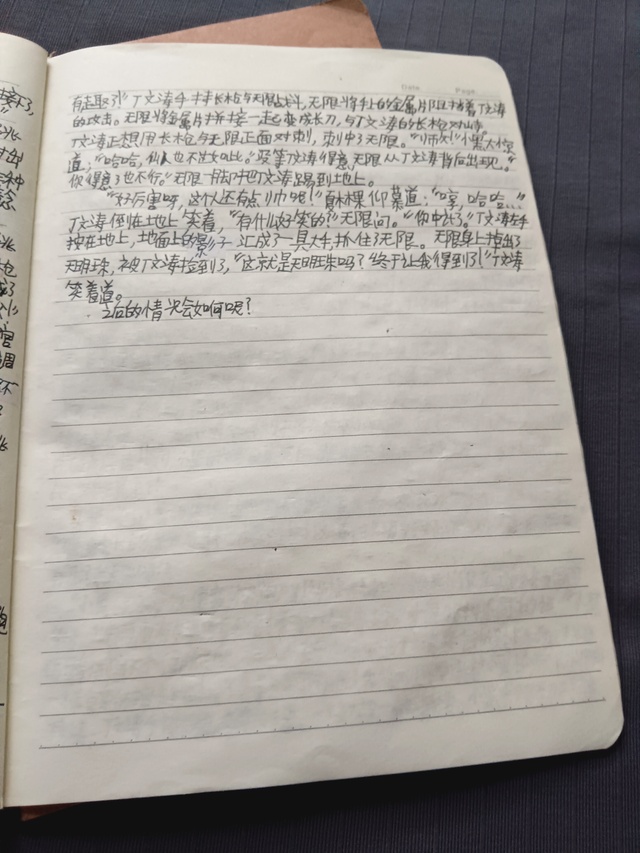 Date. Page.
有趣了！”丁文涛手持长枪与无限战斗，无限将手上的金属片阻挡着丁文涛
的攻击。无限将金属片拼接一起变成长刀，与丁文涛的长枪对
丁文涛正想用长枪与无限正面对刺，刺中了无限。“师父！”小黑大惊
道：“哈哈，仙人也不过如此。”没等丁文涛得意，无限从丁文涛背后出现。“
你得意了也不行。”无限一脚把丁文涛踢到地上。
“好厉害呀，这个人还有点儿帅呢！”真棵仰慕道：“哼，哈哈…”
丁文涛倒在地上笑着，“有什么好笑的？”无限问。“你中计了。”丁文涛左手
按在地上，地面上的影子汇成了一具大手，抓住了无限。无限身上掉出了
天明珠，被丁文涛捡到了，“这就是天明珠吗？终于让我得到了！”丁文涛
笑着道。
之后的情况会如何呢？